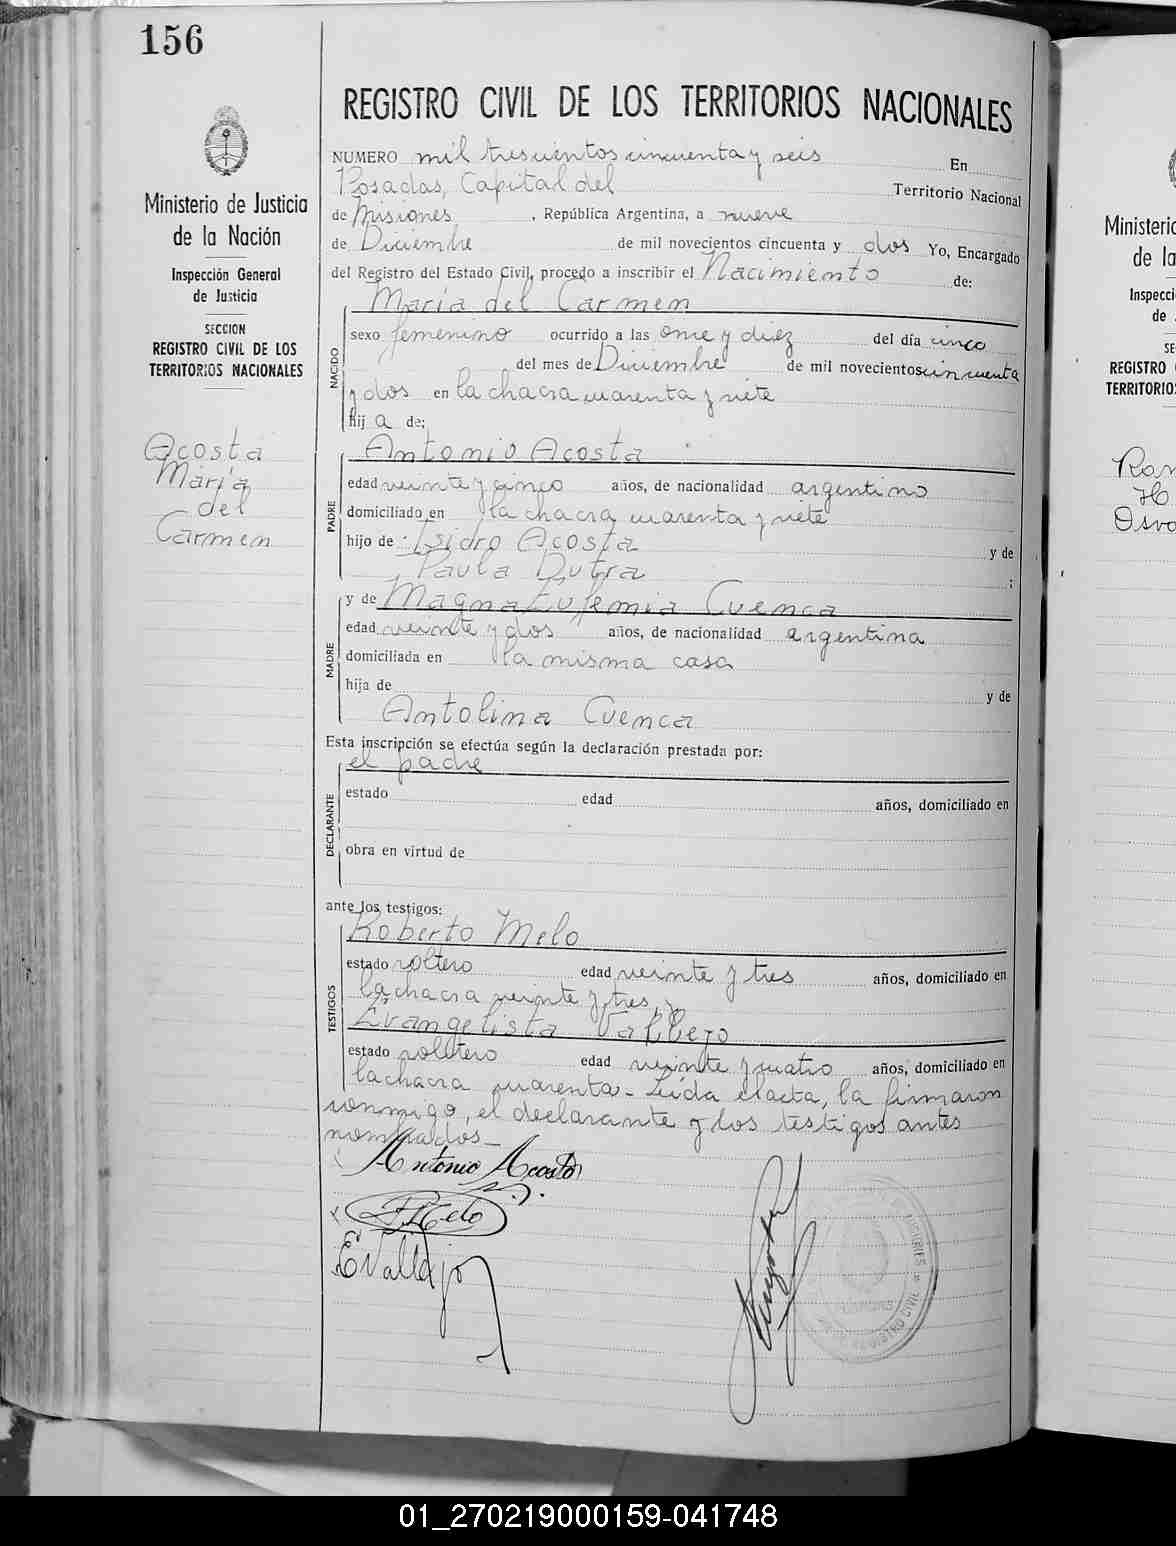 156
REGISTRO CIVIL DE LOS TERRITORIOS NACIONALES
Ministerio de Justicia
de la Nación
Inspección General
de Justicia
SECCION
REGISTRO CIVIL DE LOS
TERRITORIOS NACIONALES
Acosta
María
del
Carmen
NUMERO mil trescientos cincuenta y seis En
Posadas, Capital del Territorio Nacional
de Misiones , República Argentina, a nueve
de Diciembre de mil novecientos cincuenta y dos Yo, Encargado
del Registro del Estado Civil, procedo a inscribir el Nacimiento de:
María del Carmen
NACIDO
sexo femenino ocurrido a las once y diez del día cinco
del mes de Diciembre de mil novecientos cincuenta
y dos en la chacra cuarenta y siete
hij a de:
Antonio Acosta
PADRE
edad veinte y cinco años, de nacionalidad argentino
domiciliado en la chacra cuarenta y siete
hijo de Isidro Acosta y de
Paula Dutra ;
y de Magna Eufemia Cuenca
MADRE
edad veinte y dos años, de nacionalidad argentina
domiciliada en la misma casa
hija de y de
Antolina Cuenca
Esta inscripción se efectúa según la declaración prestada por:
el padre
DECLARANTE
estado edad años, domiciliado en
obra en virtud de
ante los testigos:
Roberto Melo
TESTIGOS
estado soltero edad veinte y tres años, domiciliado en
la chacra veinte y tres, y
Evangelista Vallejo
estado soltero edad veinte y cuatro años, domiciliado en
la chacra cuarenta - Leída el acta, la firmaron
conmigo, el declarante y los testigos antes
nombrados -
Antonio Acosta
R. Melo
E Vallejo
REGISTRO CIVIL
Ministerio
de la
Inspecci
de
SE
REGISTRO
TERRITORIO
Ram
H
Osva
01_270219000159-041748